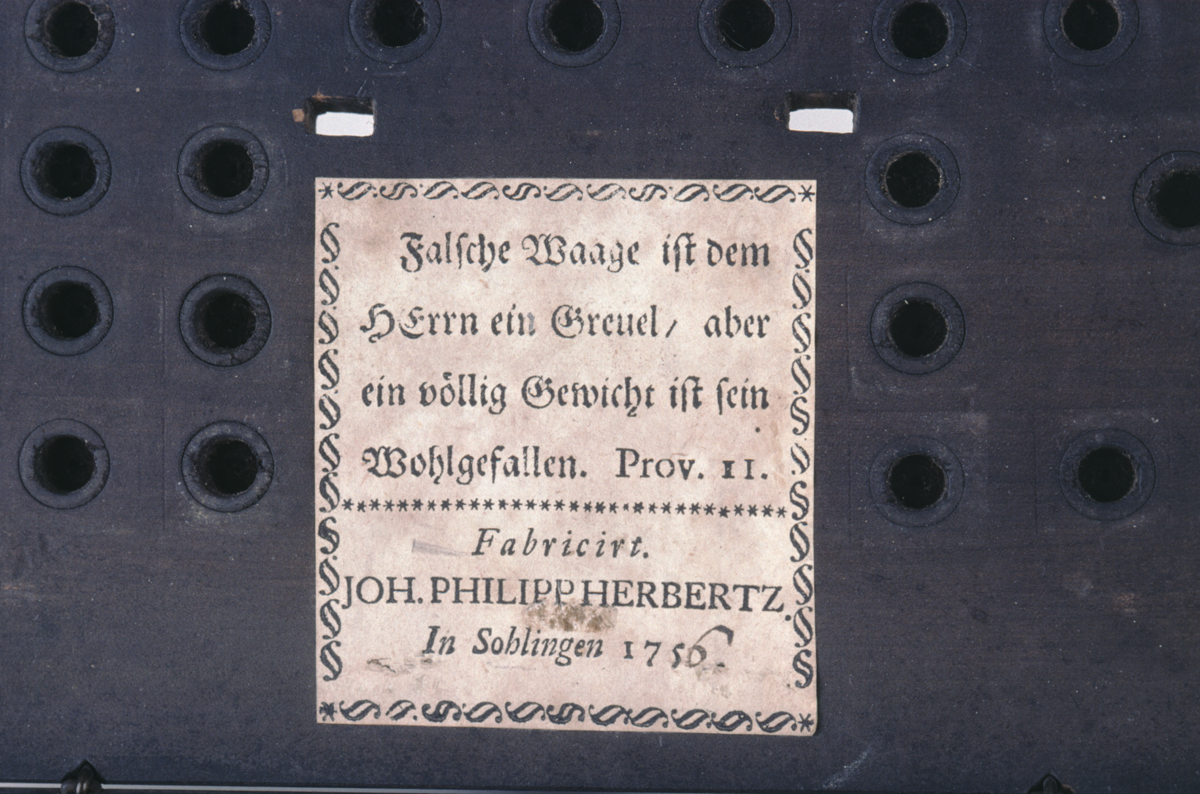 Falſche Waage iſt dem
HErrn ein Greuel/ aber
ein völlig Gewicht iſt ſein
Wohlgefallen. Prov. 11.
Fabricirt.
JOH. PHILIPP HERBERTZ.
In Sohlingen 1756.